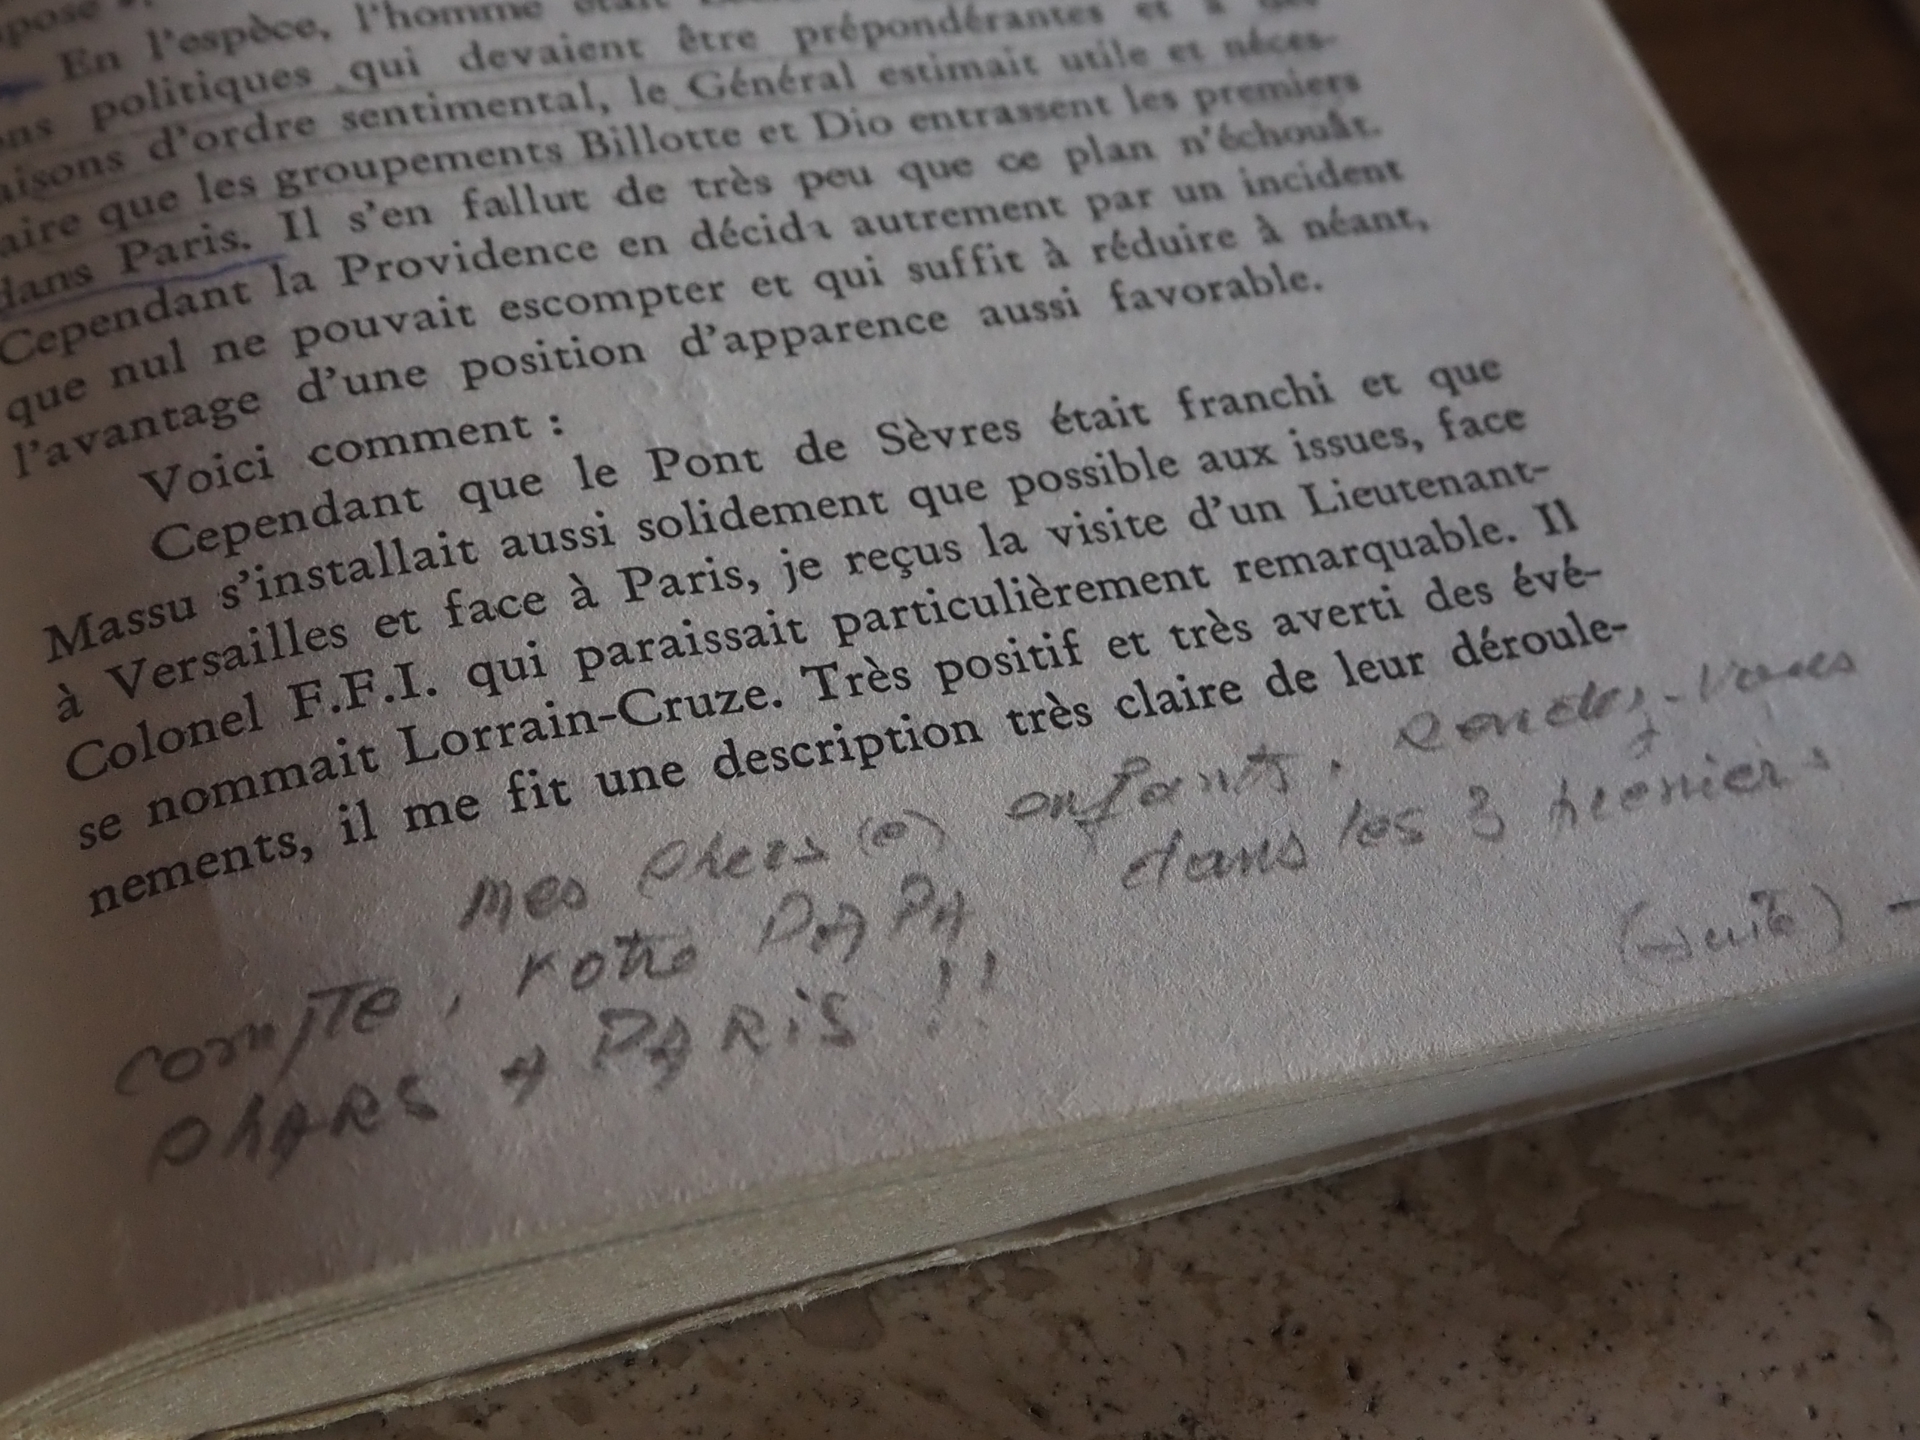 pose
En l'espèce, l'homme était
ons politiques qui devaient être prépondérantes et à des
aisons d'ordre sentimental, le Général estimait utile et néces-
aire que les groupements Billotte et Dio entrassent les premiers
dans Paris. Il s'en fallut de très peu que ce plan n'échouât.
Cependant la Providence en décida autrement par un incident
que nul ne pouvait escompter et qui suffit à réduire à néant,
l'avantage d'une position d'apparence aussi favorable.
Voici comment :
Cependant que le Pont de Sèvres était franchi et que
Massu s'installait aussi solidement que possible aux issues, face
à Versailles et face à Paris, je reçus la visite d'un Lieutenant-
Colonel F.F.I. qui paraissait particulièrement remarquable. Il
se nommait Lorrain-Cruze. Très positif et très averti des évé-
nements, il me fit une description très claire de leur déroule-
mes chers (e) enfants. Rendez-vous
compte, votre PAPA dans les 3 premiers
chars à PARIS !!
(suite) -